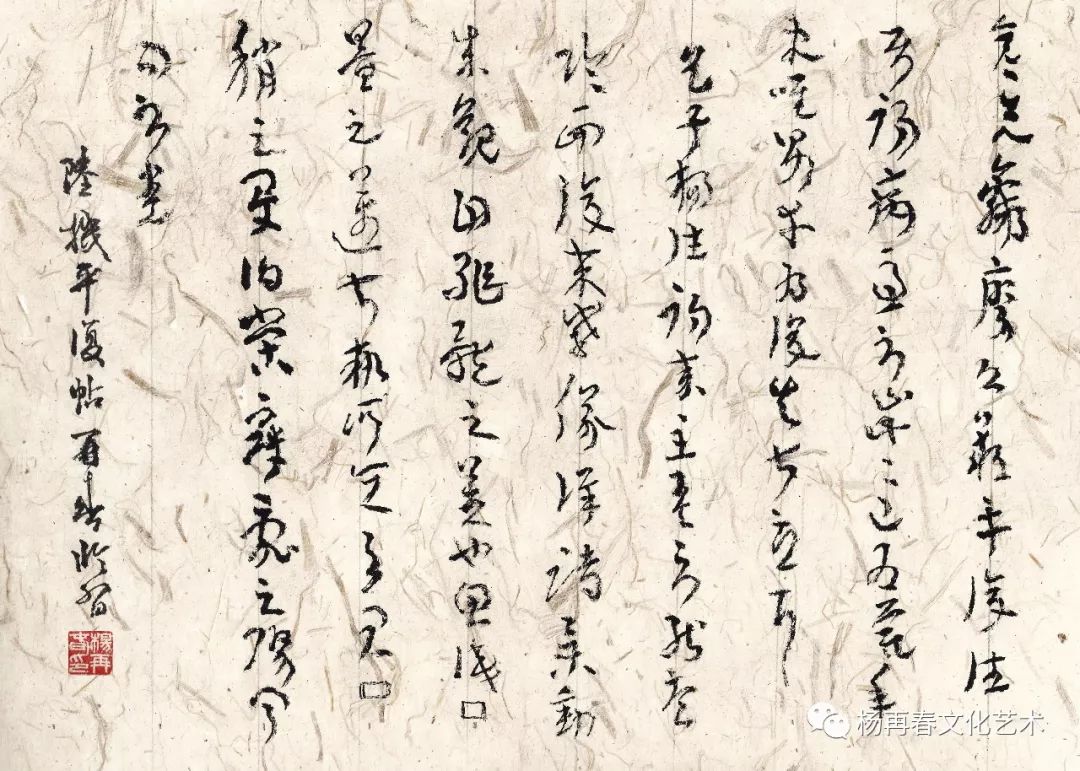 彦先羸瘵恐難平復往
屬初病慮不止此々已為慶承
使唯男幸為復失前憂耳
吳子楊往初來主吾不能盡
臨西復來威儀詳跱舉動
成觀自軀體之美也思識□
量之邁前執所恒有宜□
稱之夏伯榮寇亂之際聞
問不悉
陸機平復帖 再春臨習
楊再春印
杨再春文化艺术